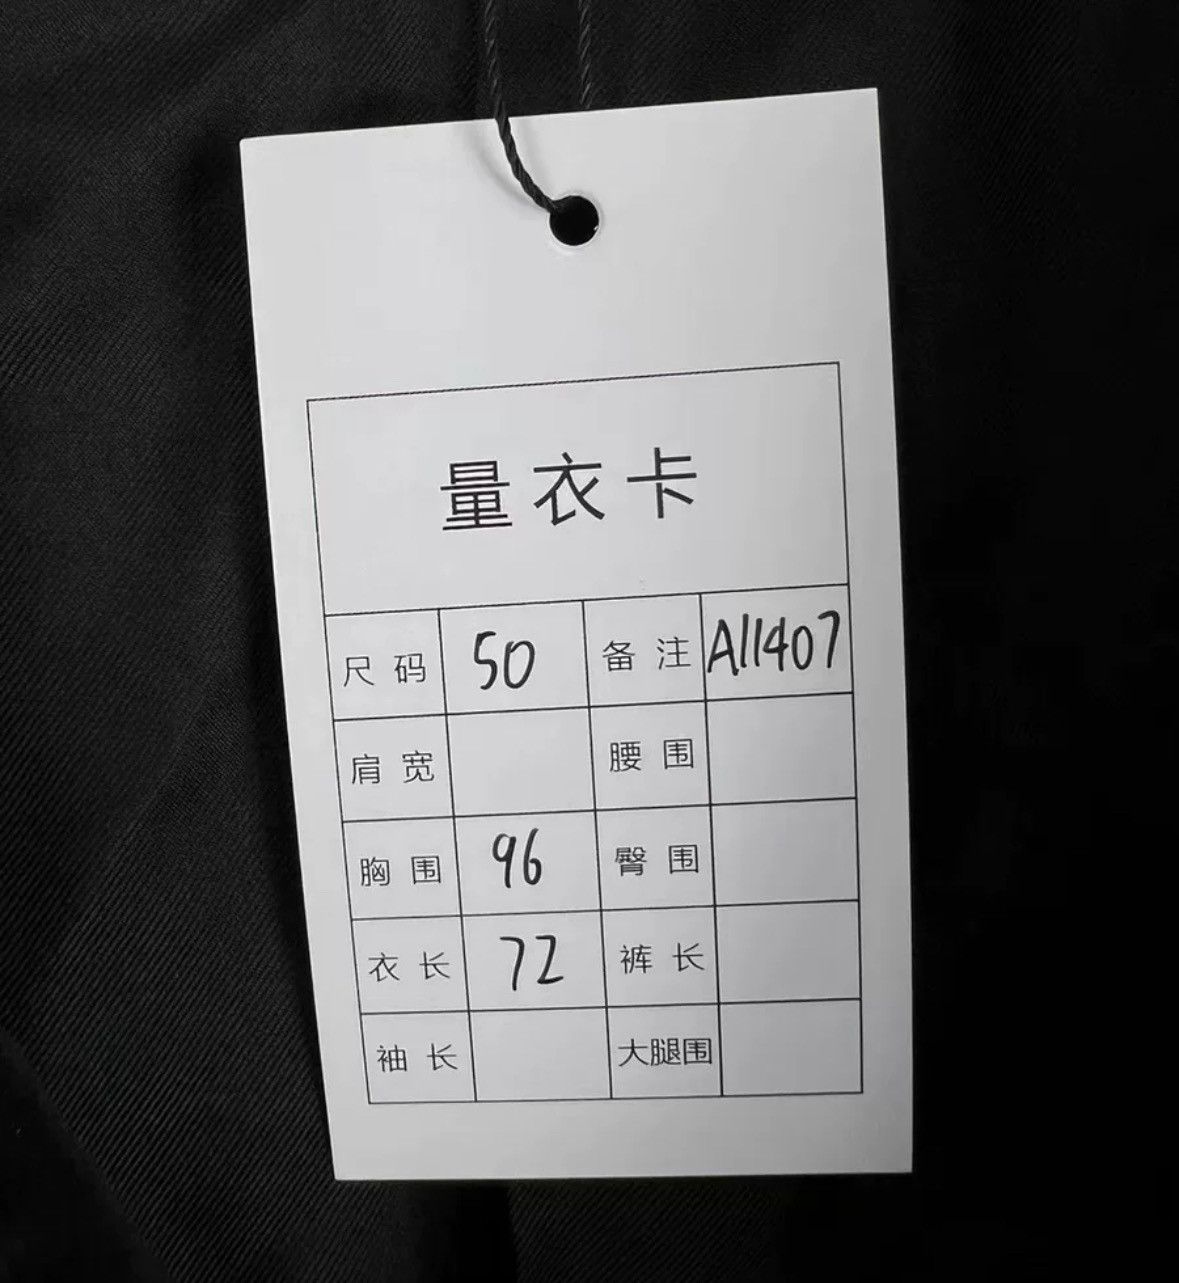 量衣卡
尺码 50 备注 A11407
肩宽 腰围
胸围 96 臀围
衣长 72 裤长
袖长 大腿围